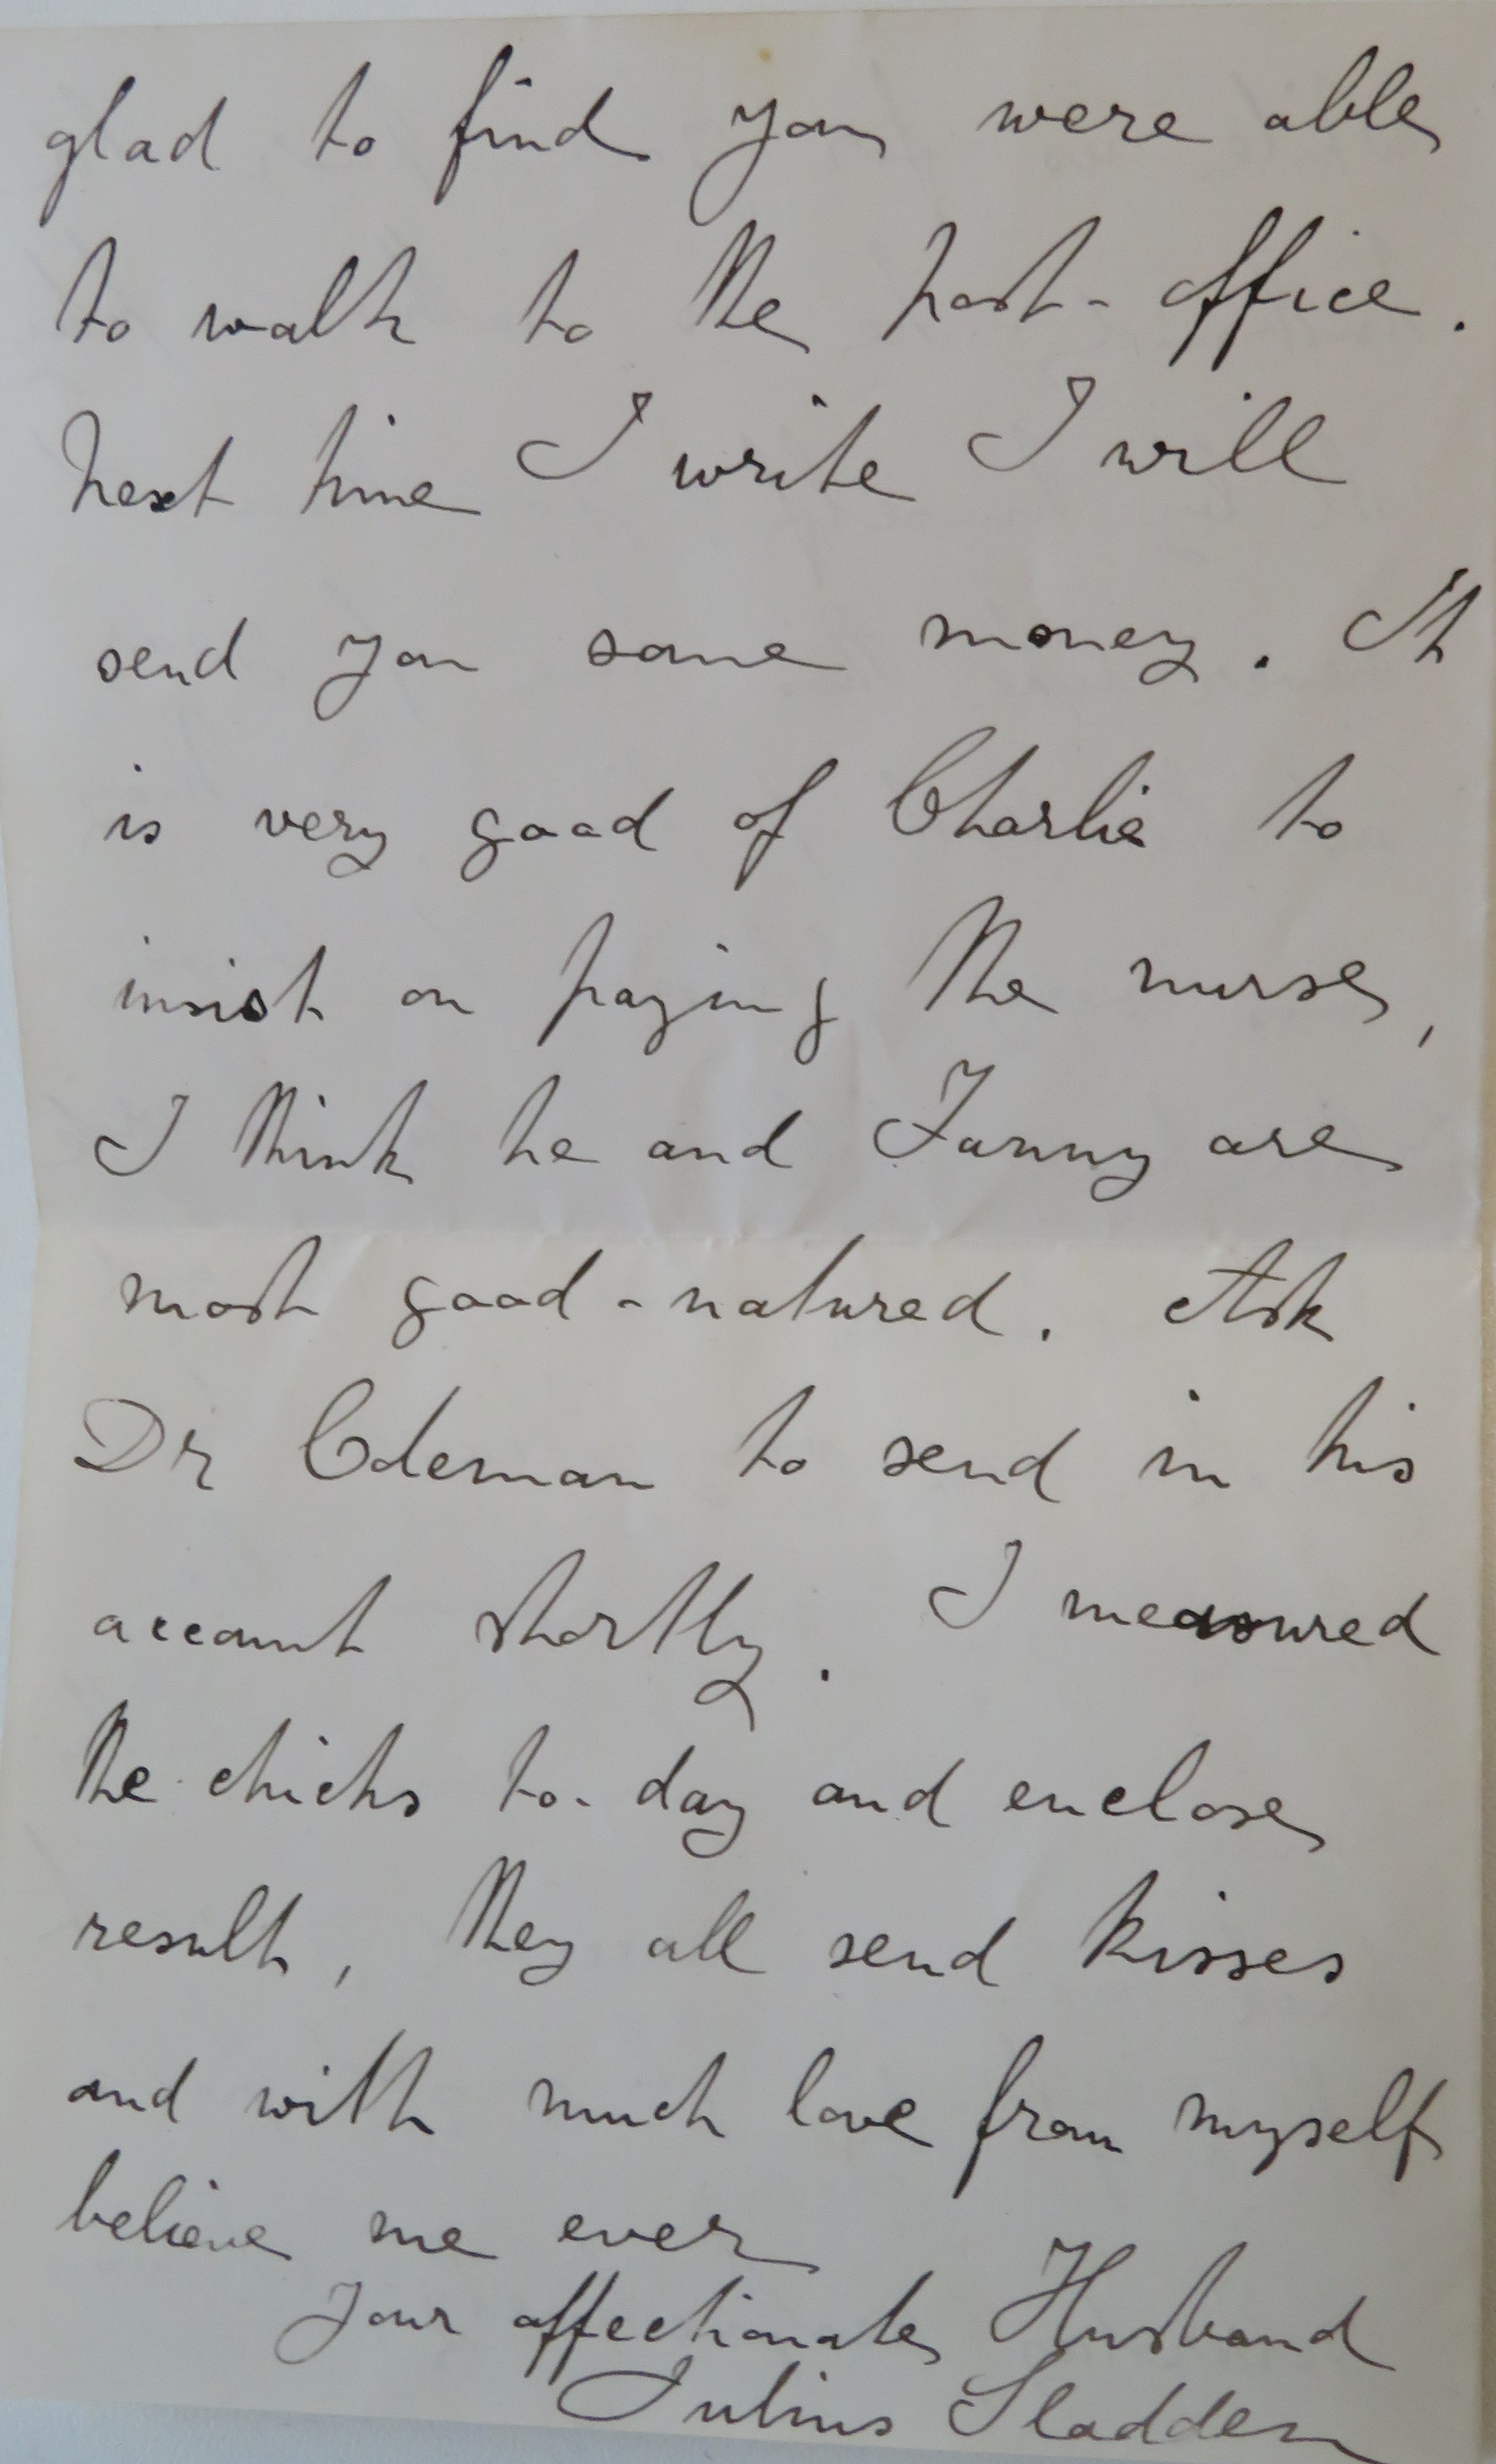 glad to find you were able
to walk to the post-office.
Next time I write I will
send you some money. It
is very good of Charlie to
insist on paying the nurse,
I think he and Fanny are
most good-natured. Ask
Dr Coleman to send in his
account shortly. I measured
the chicks to-day and enclose
result, they all send kisses
and with much love from myself
believe me ever
Your affectionate Husband
Julius Sladden